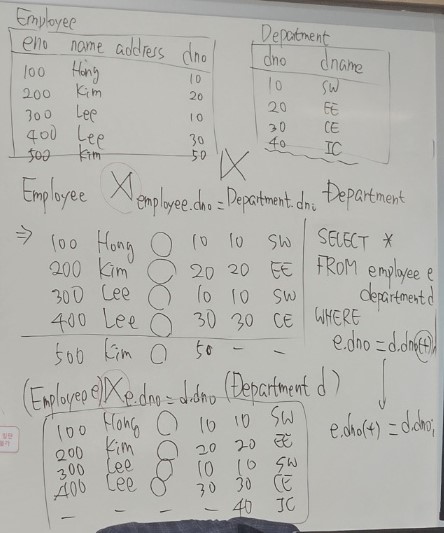 Employee
eno name address dno
100 Hong 10
200 Kim 20
300 Lee 10
400 Lee 30
500 Kim 50
Department
dno dname
10 SW
20 EE
30 CE
40 IC
Employee ⟕ employee.dno = Department.dno Department
⇒ 100 Hong ○ 10 10 SW
200 Kim ○ 20 20 EE
300 Lee ○ 10 10 SW
400 Lee ○ 30 30 CE
500 Kim ○ 50 - -
SELECT *
FROM employee e
department d
WHERE
e.dno = d.dno(+)
↓
e.dno(+) = d.dno;
(Employee e) ⟖ e.dno = d.dno (Department d)
100 Hong ○ 10 10 SW
200 Kim ○ 20 20 EE
300 Lee ○ 10 10 SW
400 Lee ○ 30 30 CE
- - - - 40 IC